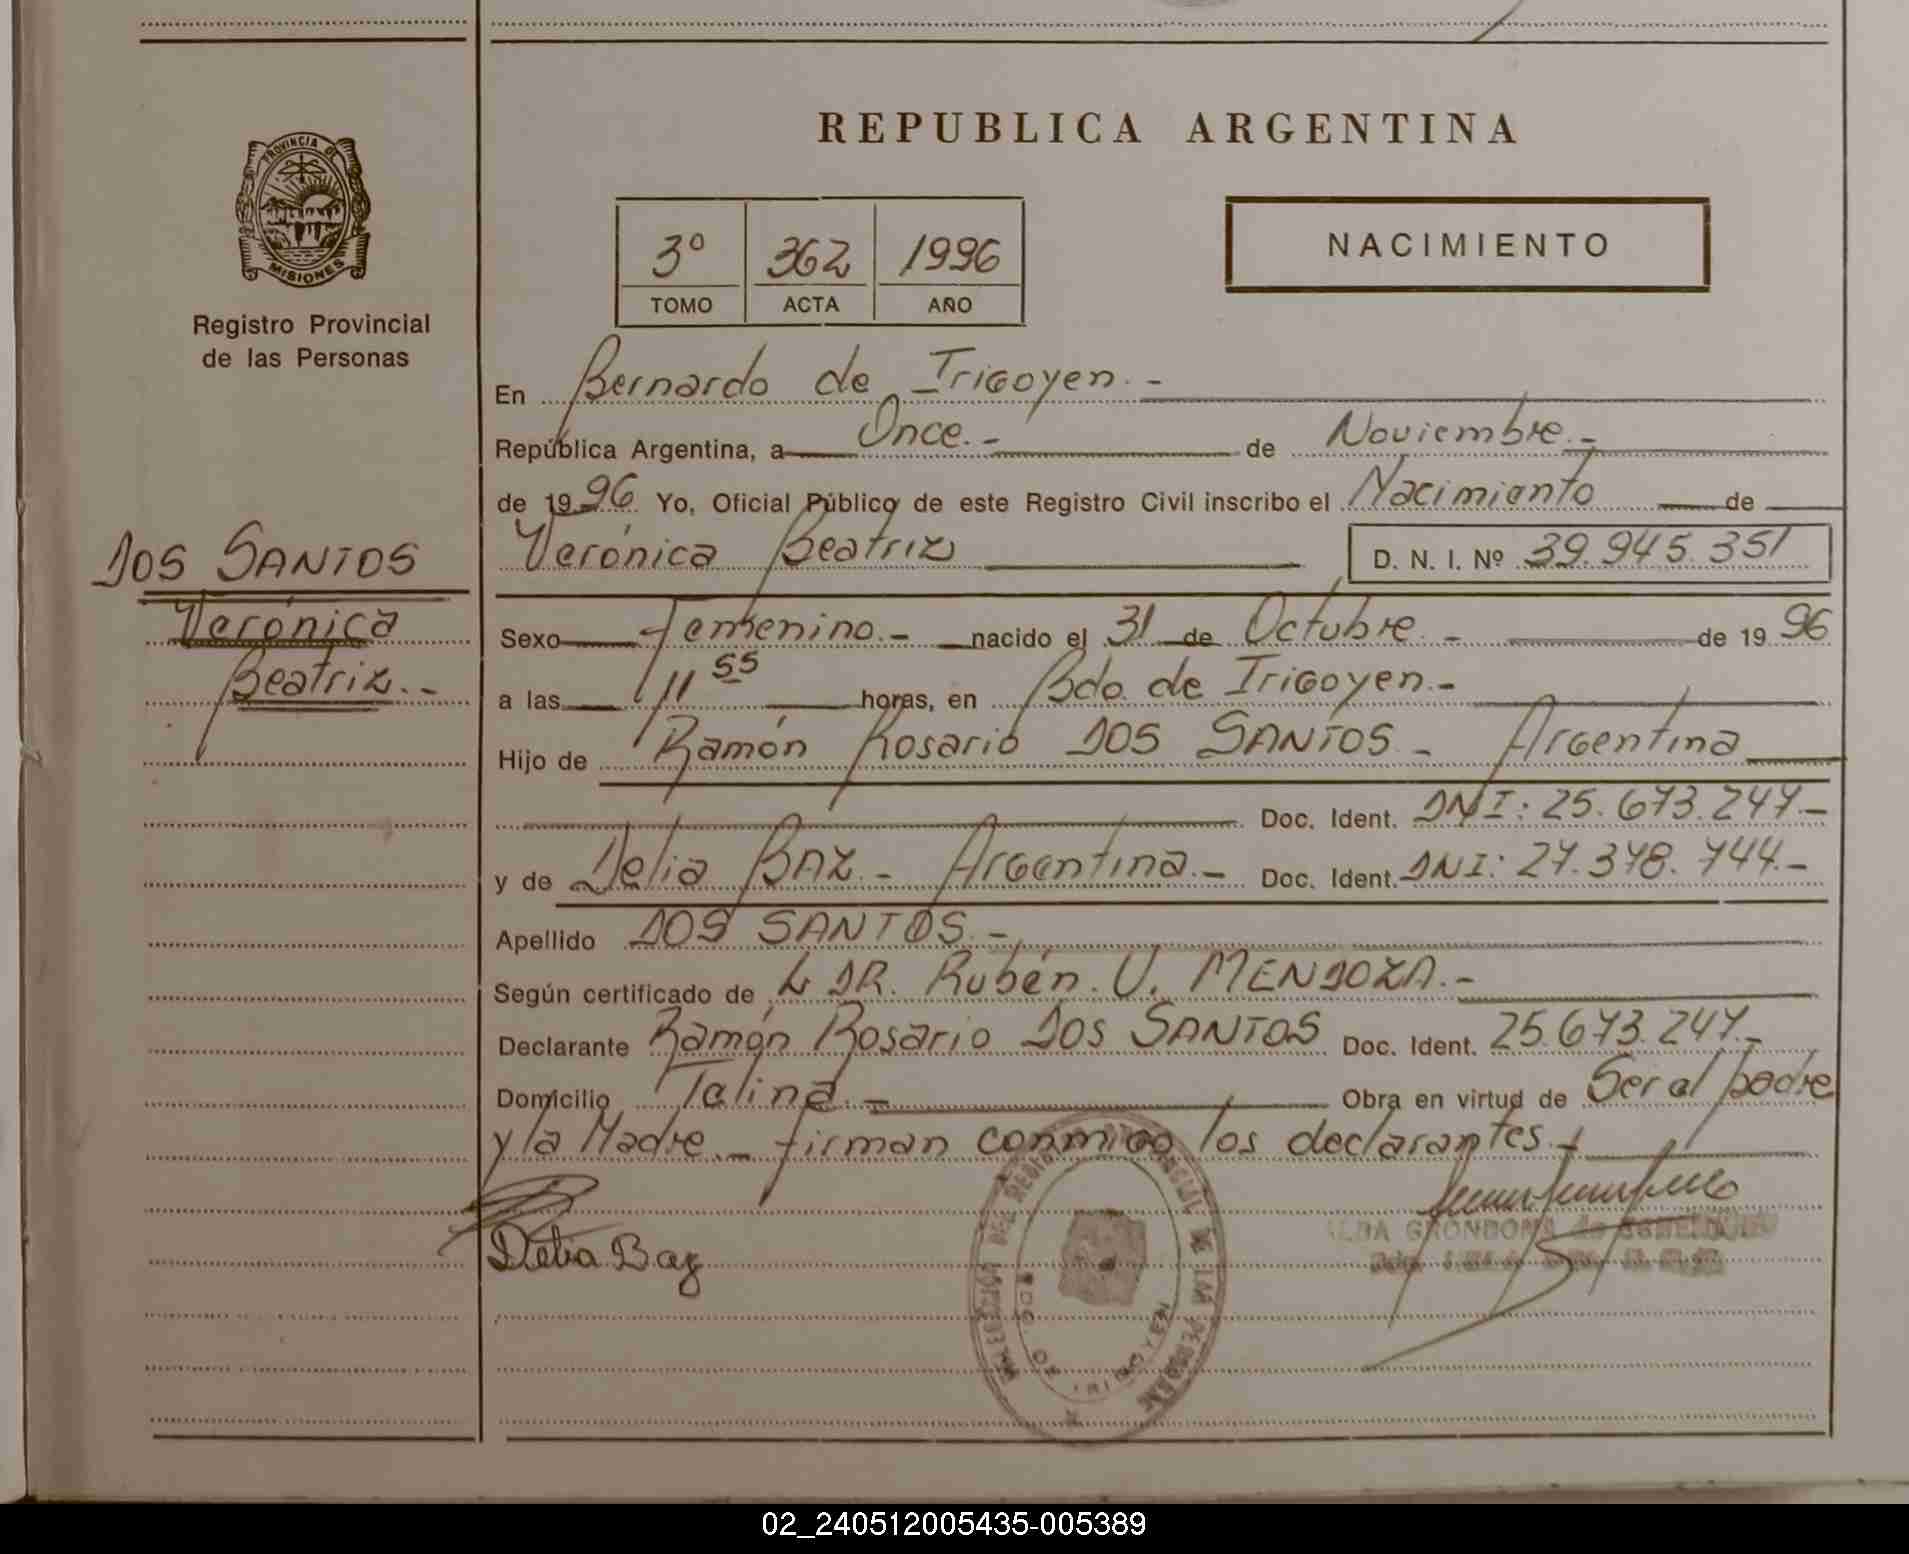 REPUBLICA ARGENTINA
PROVINCIA DE
MISIONES
Registro Provincial
de las Personas
3º 362 1996
TOMO ACTA AÑO
NACIMIENTO
En Bernardo de Irigoyen.-
República Argentina, a Once.- de Noviembre.-
de 1996 Yo, Oficial Público de este Registro Civil inscribo el Nacimiento de
Verónica Beatriz D. N. I. Nº 39.945.351
DOS SANTOS
Verónica
Beatriz.-
Sexo Femenino.- nacido el 31 de Octubre.- de 1996
a las 11 55 horas, en Bdo. de Irigoyen.-
Hijo de Ramón Rosario DOS SANTOS - Argentina
Doc. Ident. DNI: 25.673.247.-
y de Delia BAZ.- Argentina.- Doc. Ident. DNI: 27.378.744.-
Apellido DOS SANTOS.-
Según certificado de DR. Rubén. U. MENDOZA.-
Declarante Ramón Rosario DOS SANTOS Doc. Ident. 25.673.247.-
Domicilio Talina.- Obra en virtud de Ser el padre
y la Madre.- firman conmigo los declarantes.-
Delia Baz
ALBA GRONDONA de
BDO. DE IRIGOYEN
02_240512005435-005389